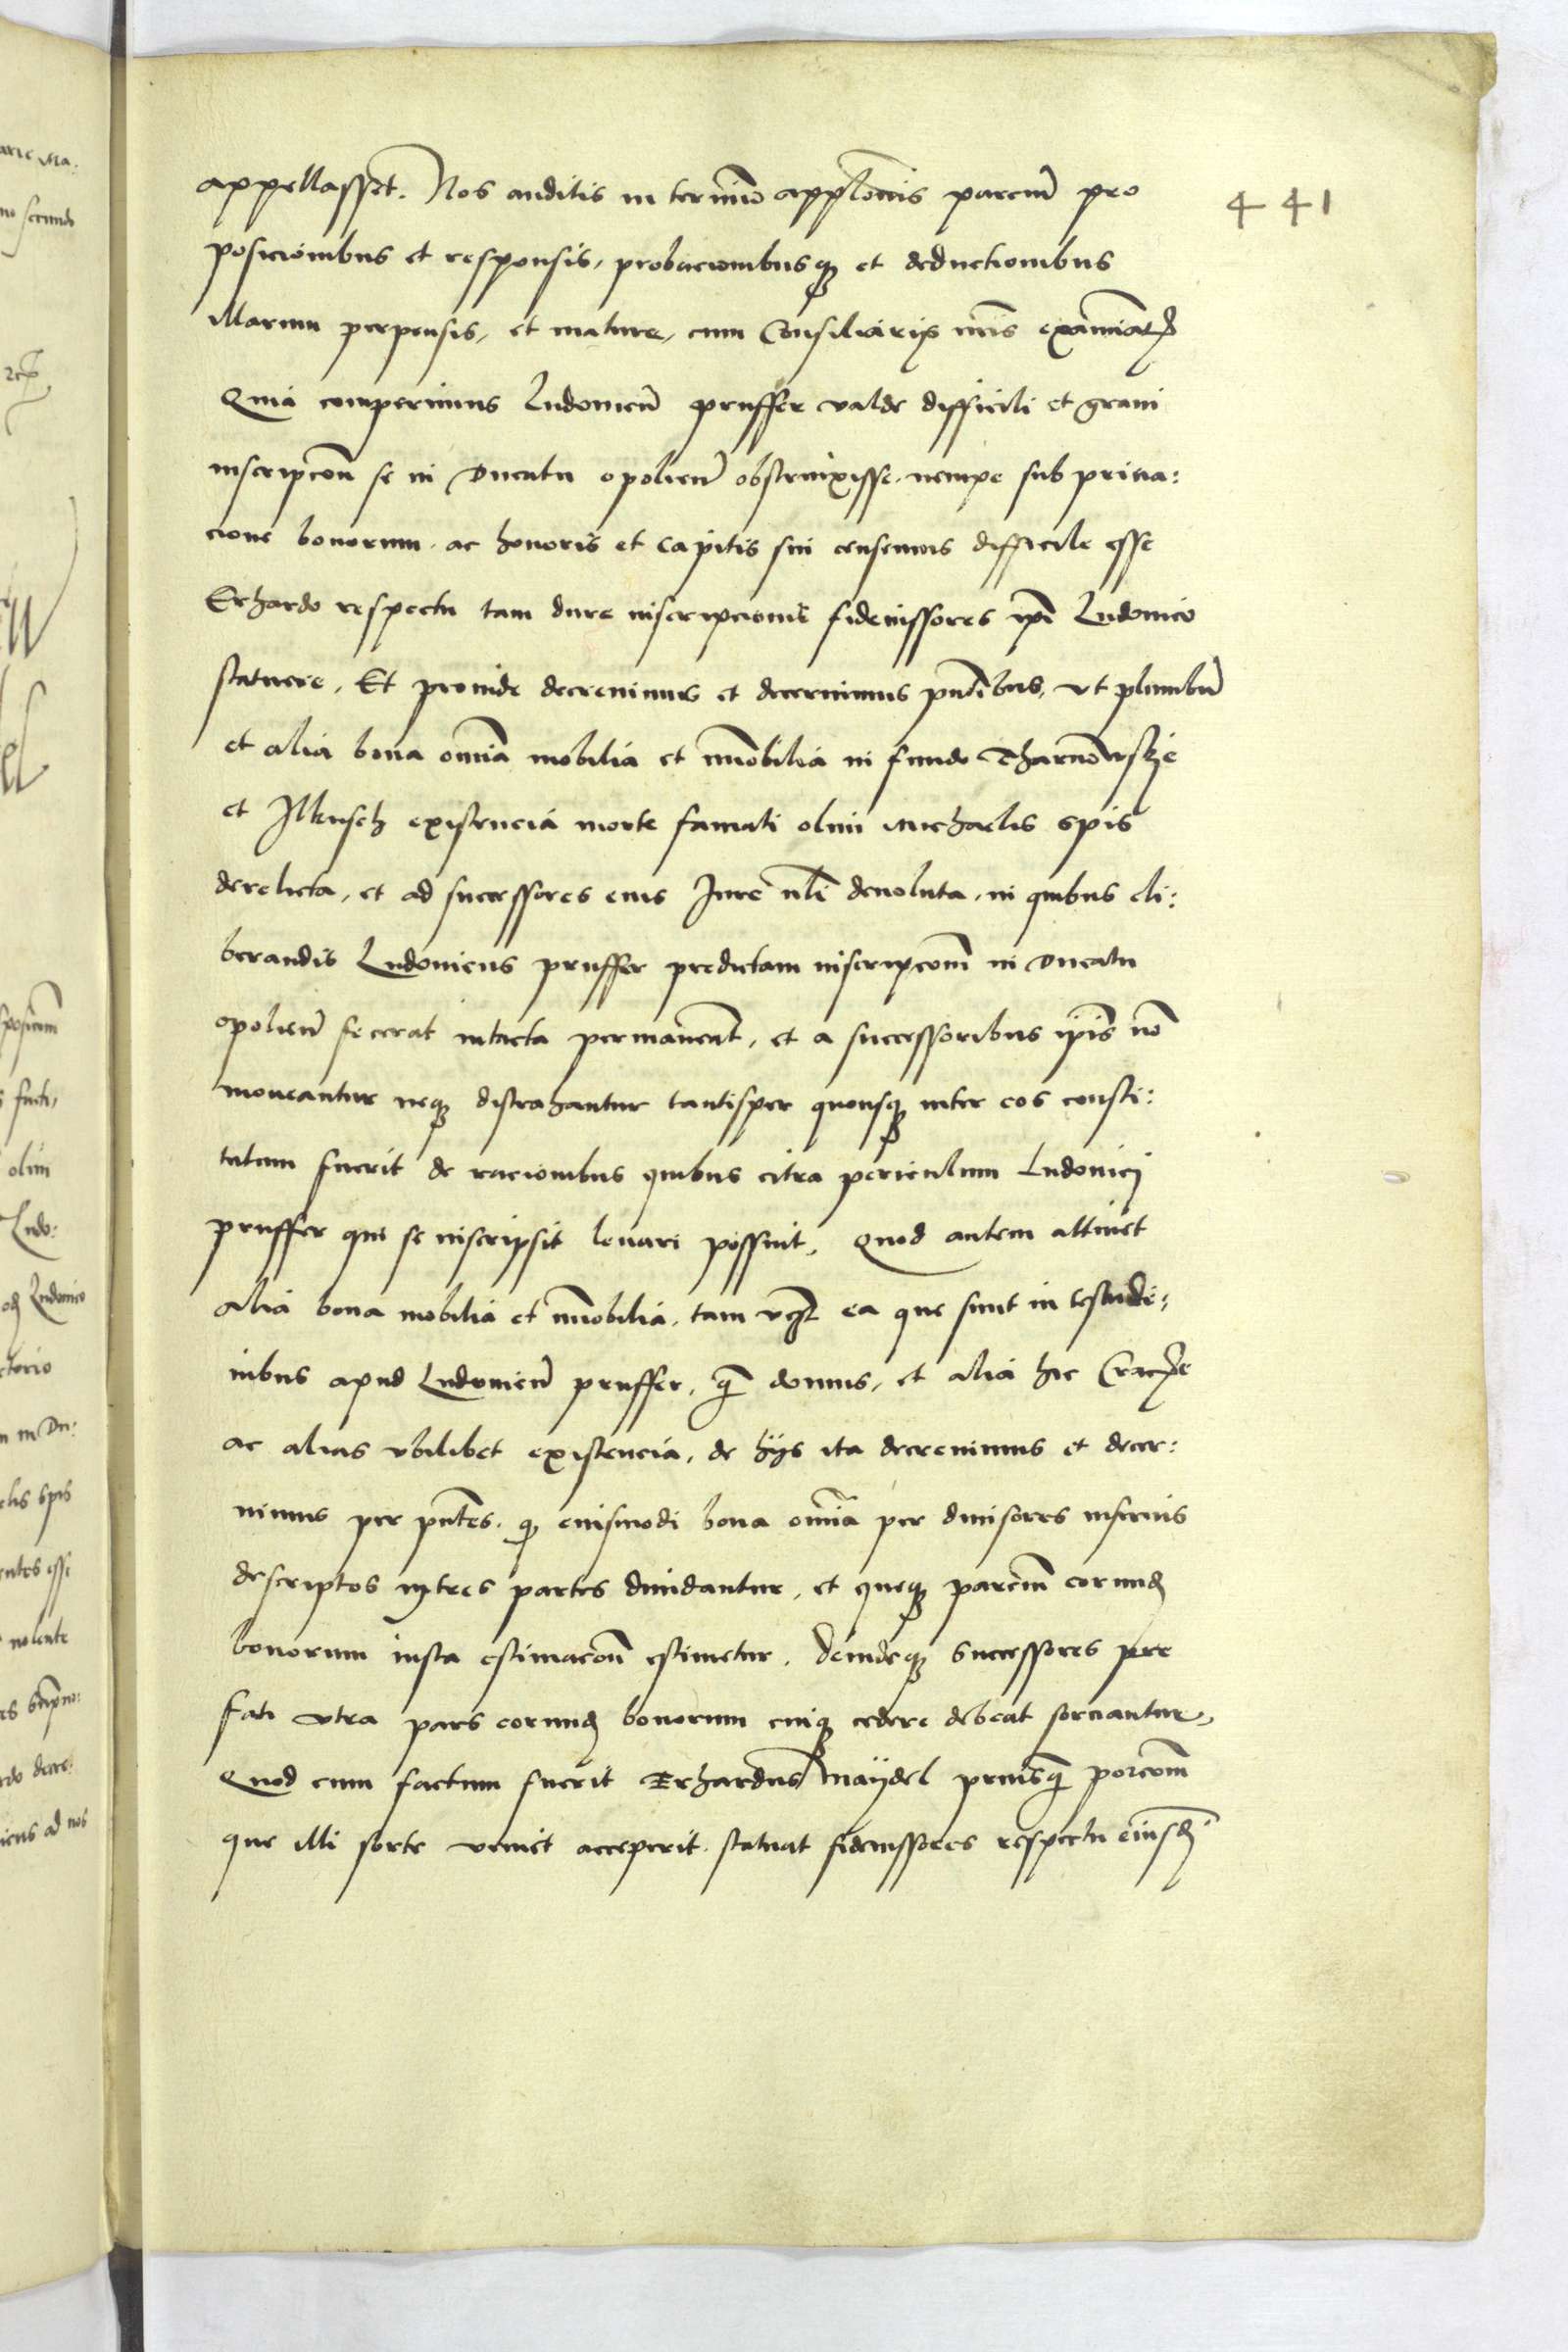 441
appellasset. Nos auditis in termino applōnis parciū pro
posicionibus et responsis, probacionibusq; et deductionibus
illarum perpensis, et mature, cum Consiliarijs nrīs examinatꝭ
Quia comperimus Ludovicū pruffer valde difficili et gravi
inscripcoē se in Ducatu opolień obstrinxisse, nempe sub priva:
cione bonorum, ac honoris et capitis sui censemus difficile esse
Erhardo respectu tam dure inscripcionis fideiussores ipi Ludovico
statuere, Et proinde decrevimus et decernimus pntibus, vt plumbū
et alia bona omīa mobilia et īmobilia in fundo Tharnowskie
et Ilkusch existencia morte famati olim Michaelis Spis
derelicta, et ad successores eius Jure nlī devoluta, in quibus eli:
berandis Ludovicus pruffer predictam inscripcoēm in Ducatu
opolień fecerat intacta permaneant, et a successoribus ipīs nō
moveantur neq; distrahantur tantisper quousq; inter eos consti:
tutum fuerit de racionibus quibus citra periculum Ludovicj
pruffer qui se inscripsit levari possint, Quod autem attinet
alia bona mobilia et īmobilia, tam vcꝫ ea que sunt in testudi:
nibus apud Ludovicū pruffer, q̄ domus, et alia hic Cracꝭe
ac alias vbilibet existencia, de hijs ita decrevimus et decer:
nimus per pntes, q; eiusmodi bona omīa per divisores inferius
descriptos in tres partes dividantur, et queq; parciū eorund
bonorum iusta estimacoē estimetur, deindeq; successores pre
fati vtra pars eorund bonorum cuiq; cedere debeat sorciantur,
Quod cum factum fuerit Erhardus Maydel priusq̄ porcoēm
que illi sorte veniet acceperit, statuat fideiussores respectu eiusd